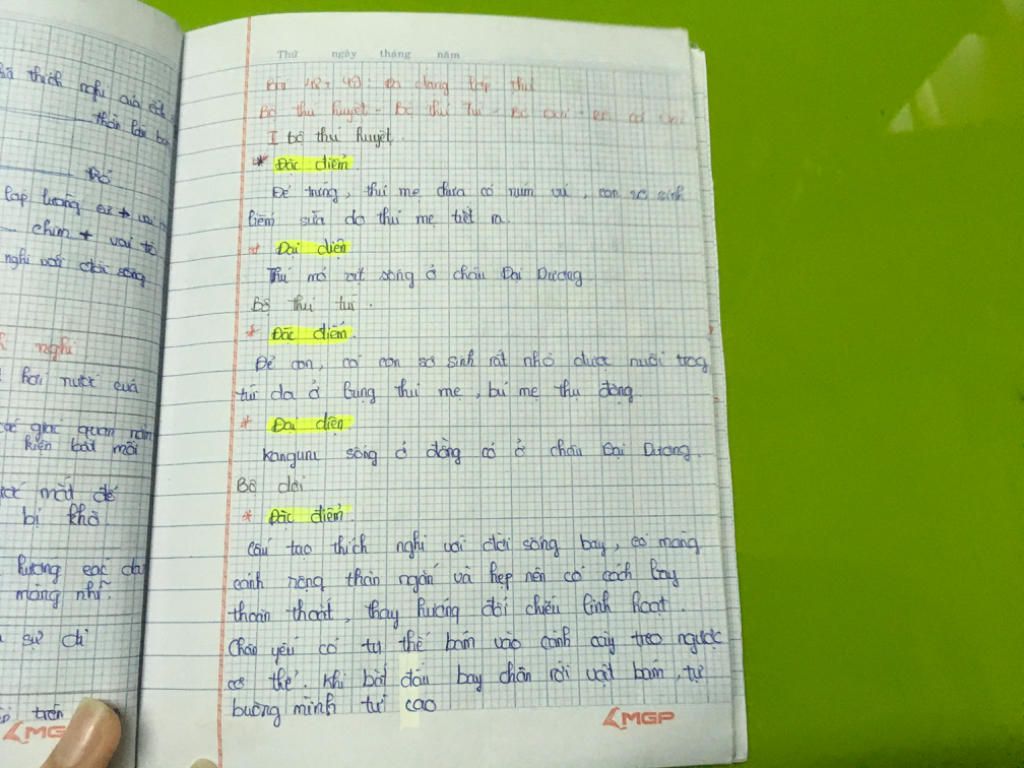 ra thích nghi của ếch
thằn lằn bón
Bó
lớp lưỡng cư +
chim + vai trò
nghi với đời sống
nghi
hơi nước quá
giác quan nằm
kiện bắt mồi
mắt để
bị khô
hướng các
màng nhĩ.
sự di
trên
MG
Thứ ngày tháng năm
Bài 48 + 49: Đa dạng lớp thú
Bộ thú huyệt - Bộ thú túi - Bộ dơi - Bộ cá voi
I bộ thú huyệt.
* Đặc điểm
Đẻ trứng, thú mẹ chưa có núm vú, con sơ sinh
liếm sữa do thú mẹ tiết ra.
* Đại diện
Thú mỏ vịt sống ở châu Đại Dương
Bộ thú túi.
* Đặc điểm.
Đẻ con, có con sơ sinh rất nhỏ được nuôi trog
túi da ở bụng thú mẹ, bú mẹ thụ động.
* Đại diện
Kanguru sống ở đồng cỏ ở châu Đại Dương.
Bộ dơi
* Đặc điểm.
Cấu tạo thích nghi với đời sống bay, có màng
cánh rộng thân ngắn và hẹp nên có cách bay
thoăn thoắt, thay hướng đổi chiều linh hoạt.
Chân yếu có tư thế bám vào cành cây treo ngược
cơ thể. Khi bắt đầu bay chân rời vật bám, tự
buông mình từ cao
MGP